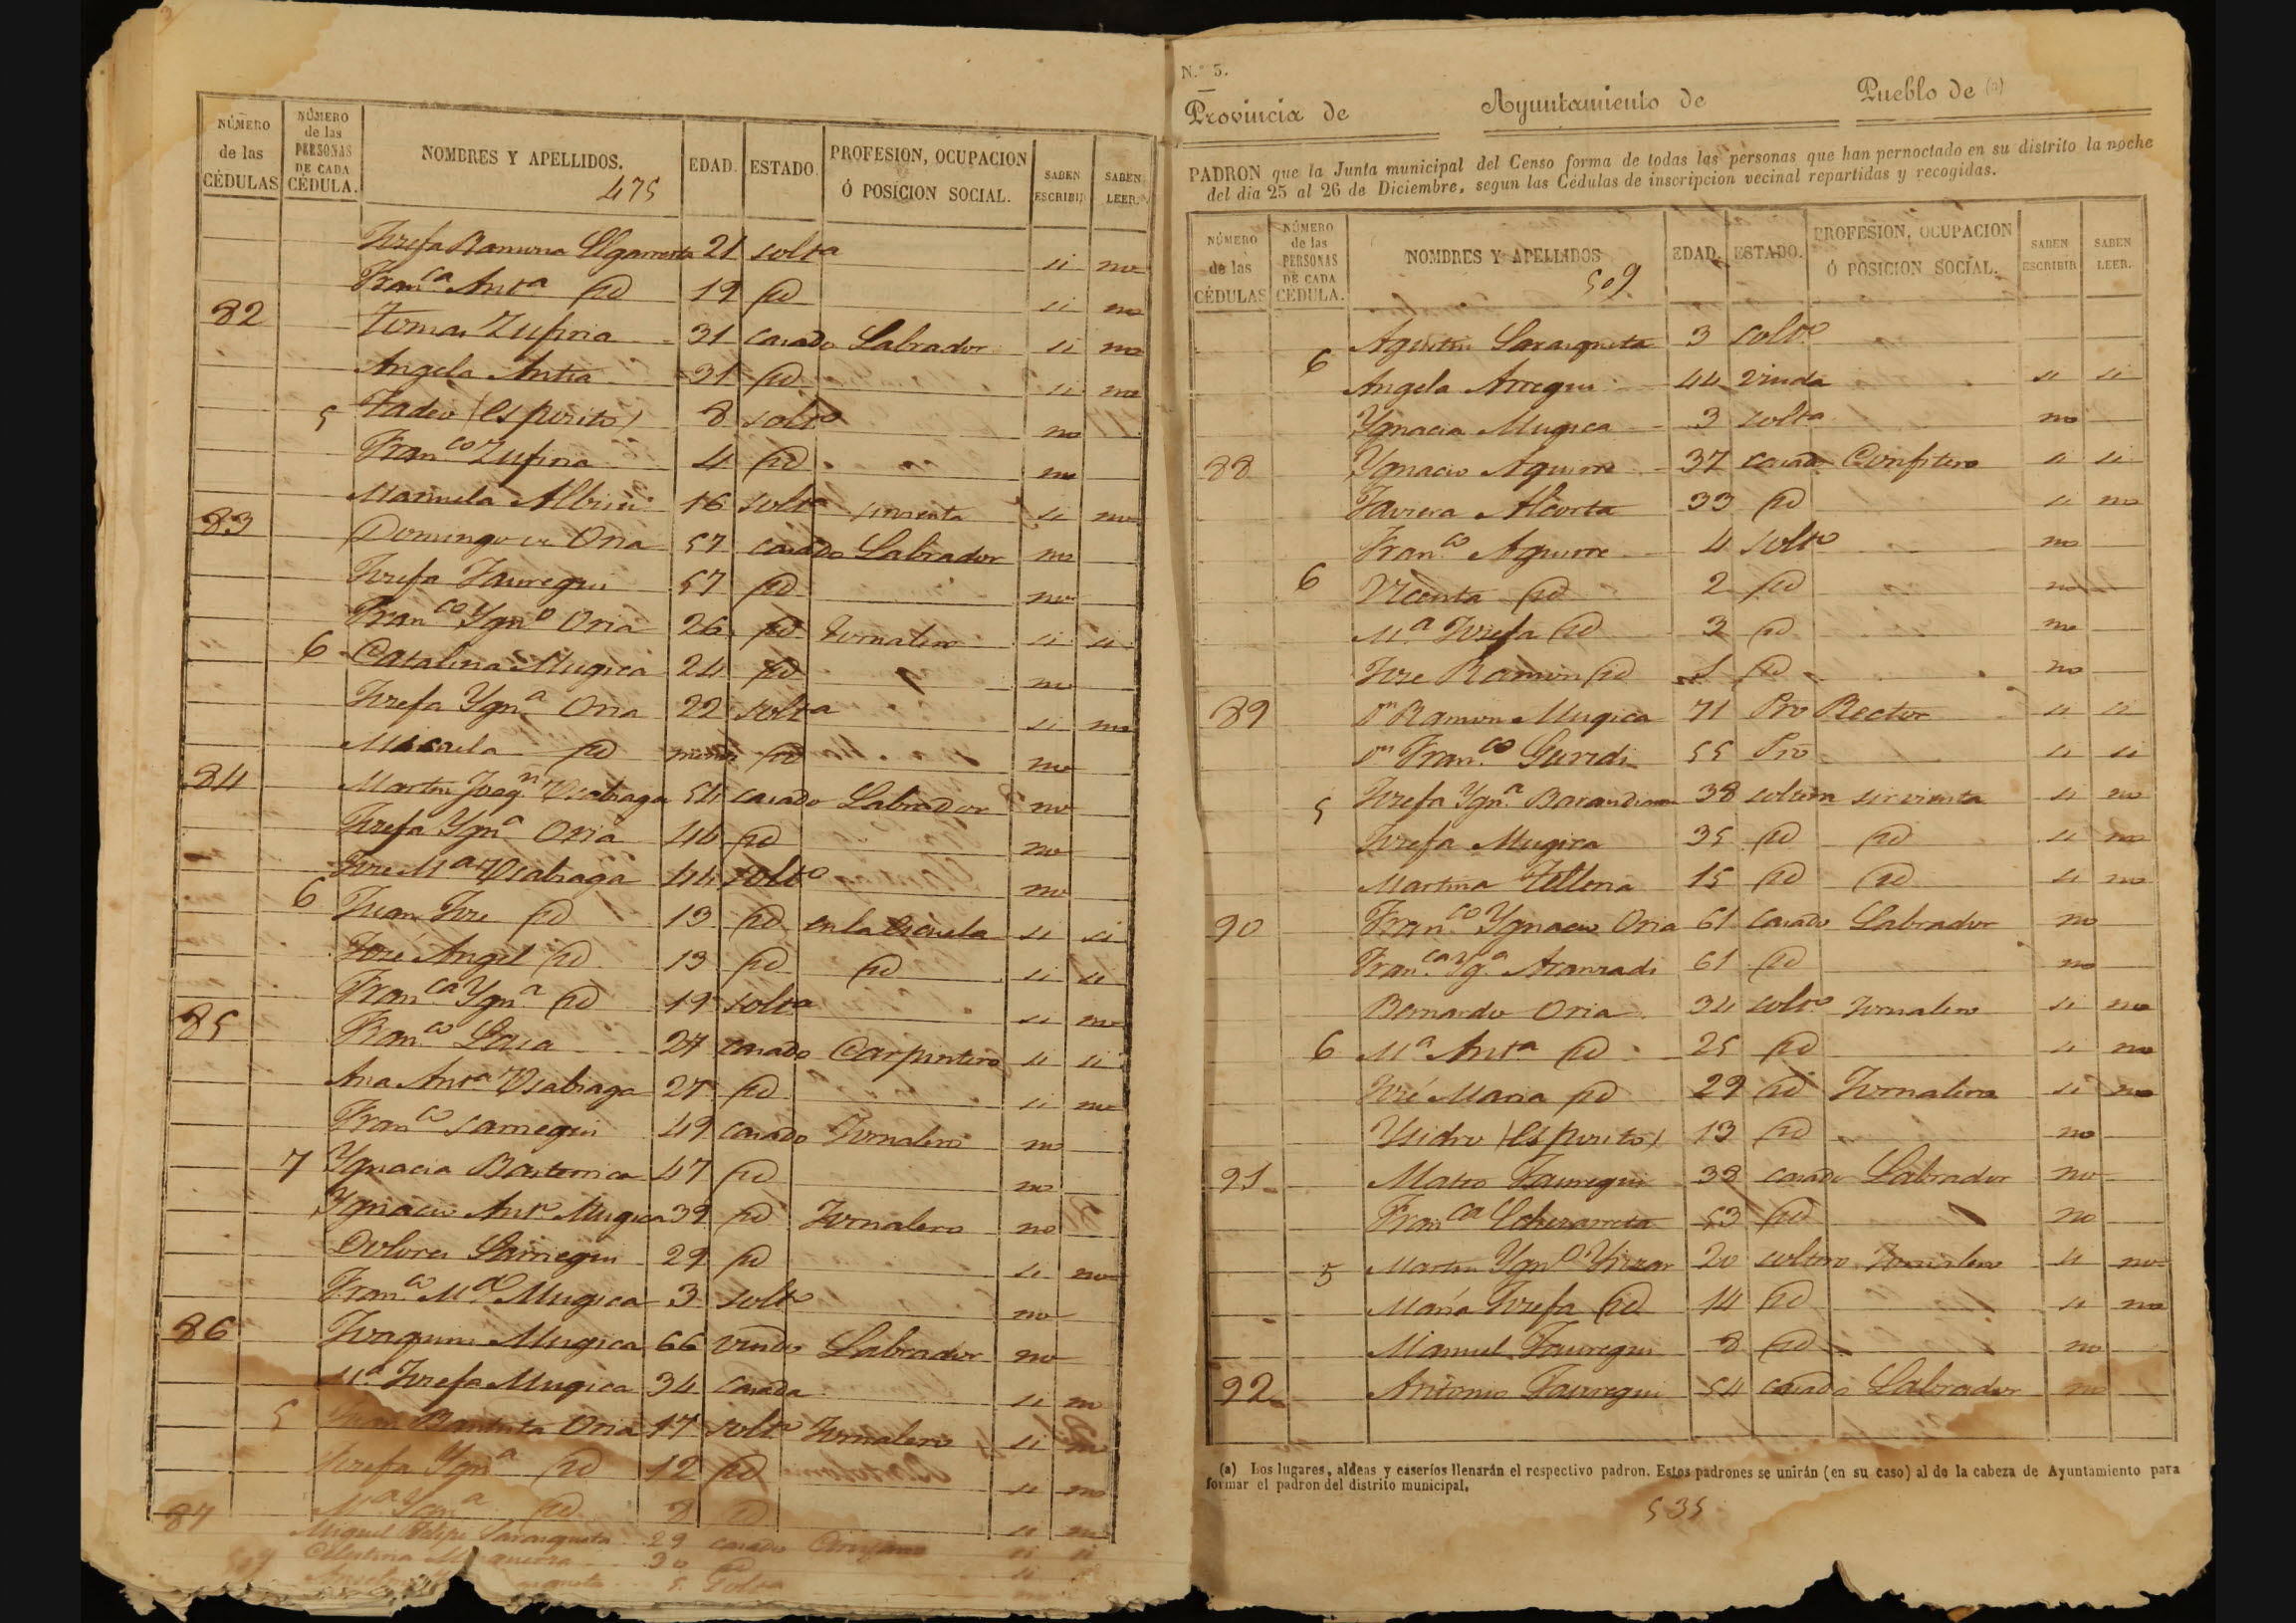 NÚMERO de las CÉDULAS
NÚMERO de las PERSONAS DE CADA CÉDULA.
NOMBRES Y APELLIDOS.
475
EDAD.
ESTADO
PROFESION, OCUPACION Ó POSICION SOCIAL.
SABEN ESCRIBIR
SABEN LEER.
Josefa Ramona Elgarresta 21 solta si no
Franca Anta id 19 id si no
82 Tomas Zufiria 31 casado Labrador si no
Angela Antia 31 id si no
5 Tadeo (esposito) 8 solto no
Franco Zufiria 4 id no
Manuela Albisu 16 solta sirvienta si no
83 Domingo Oria 57 casado Labrador no
Josefa Jauregui 57 id no
Franco Ygno Oria 26 id Jornalero si si
6 Catalina Mugica 24 id no
Josefa Ygna Oria 22 solta si no
Micaela id id no
84 Martin Joaqn Usabiaga 54 casado Labrador no
Josefa Ygna Oria 44 id no
Jose Ma Usabiaga 44 solto no
6 Juan Jose id 13 id en la escuela si si
José Angel id 13 id id si si
Franca Ygna id 19 solta si no
85 Franco Lasa 27 casado Carpintero si si
Ana Anta Usabiaga 27 id si no
Franco Sarriegui 49 casado Jornalero no
7 Ygnacia Basterrica 47 id no
Ygnacio Anto Mugica 39 id Jornalero no
Dolores Sarriegui 29 id si no
Franco Ma Mugica 3 solto no
86 Joaquin Mugica 66 viudo Labrador no
Ma Josefa Mugica 34 casada si no
5 Juan Bautista Oria 17 solto Jornalero si no
Josefa Ygna id 12 id si no
Ma Ygna id 8 id si no
87 Miguel Felipe Sarasqueta 29 casado Cirujano si si
509 Celestina 30 id si
5 solta
N.º 5.
Provincia de Ayuntamiento de Pueblo de (a)
PADRON que la Junta municipal del Censo forma de todas las personas que han pernoctado en su distrito la noche
del dia 25 al 26 de Diciembre, segun las Cédulas de inscripcion vecinal repartidas y recogidas.
NÚMERO de las CÉDULAS
NÚMERO de las PERSONAS DE CADA CEDULA.
NOMBRES Y APELLIDOS
509
EDAD.
ESTADO.
PROFESION, OCUPACION Ó POSICION SOCIAL.
SABEN ESCRIBIR
SABEN LEER.
Agustin Sarasqueta 3 solto
6 Angela Arregui 44 viuda si si
Ygnacia Mugica 3 solta no
88 Ygnacio Aguirre 37 casado Confitero si si
Javiera Alcorta 33 id si no
Franco Aguirre 4 solto no
6 Vicenta id 2 id no
Ma Josefa id 3 id no
Jose Ramon id 1 id no
89 Dn Ramon Mugica 71 Pro Rector si si
Dn Franco Guridi 55 Pro si si
5 Josefa Ygna Barandiaran 38 soltera sirvienta si no
Josefa Mugica 35 id id si no
Martina Telleria 15 id id si no
90 Franco Ygnacio Oria 61 casado Labrador no
Franca Yga Aranzadi 61 id no
Bernardo Oria 34 solto Jornalero si no
6 Ma Anta id 25 id si no
José Maria id 29 id Jornalero si no
Ysidro (esposito) 13 id no
91 Mateo Jauregui 38 casado Labrador no
Franca Echezarreta 53 id no
5 Martin Ygno 20 soltero Jornalero si no
Maria Josefa id 14 id si no
Manuel Jauregui 8 id no
92 Antonio Jauregui 54 casado Labrador no
(a) Los lugares, aldeas y caseríos llenarán el respectivo padron. Estos padrones se unirán (en su caso) al de la cabeza de Ayuntamiento para
formar el padron del distrito municipal.
535